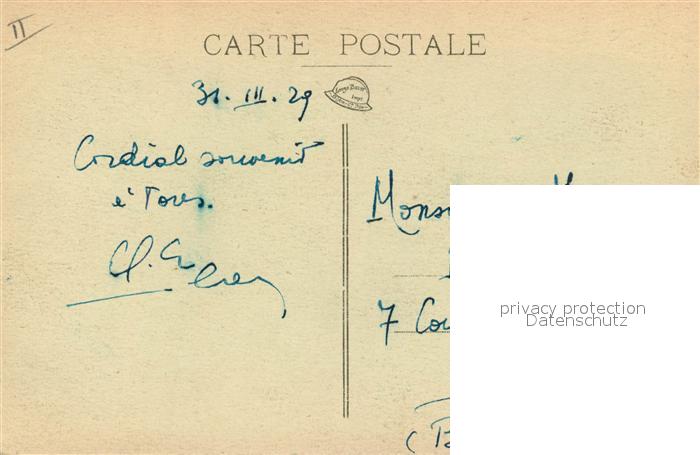 II
CARTE POSTALE
31. III. 29
Cordial souvenir
à Tous.
Monsi
7 Cou
(B
privacy protection
Datenschutz